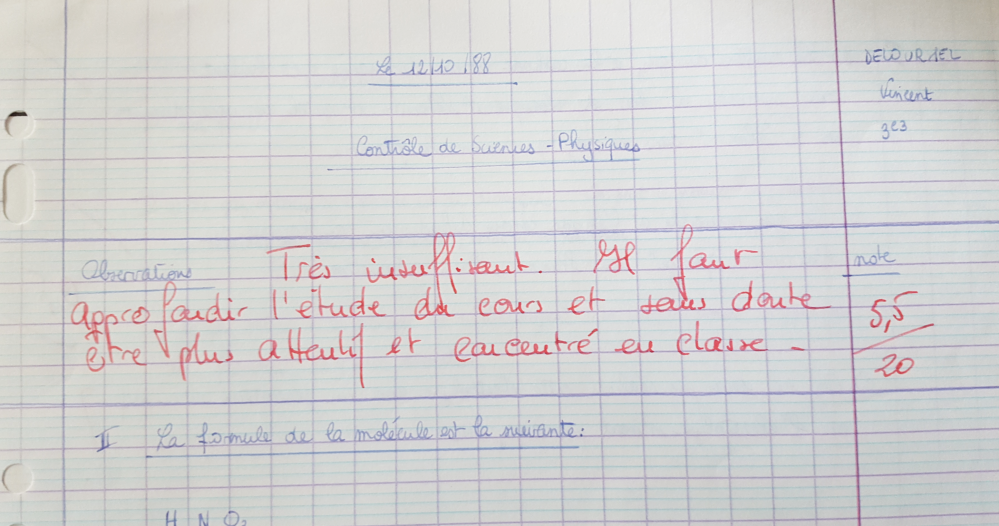 Le 12/10/88
DELOURMEL
Vincent
3e3
Contrôle de Sciences-Physiques
Observations
Très insuffisant. Il faut
approfondir l'étude du cours et sans doute
être plus attentif et concentré en classe -
note
5,5
20
II La formule de la molécule est la suivante:
H N O₃